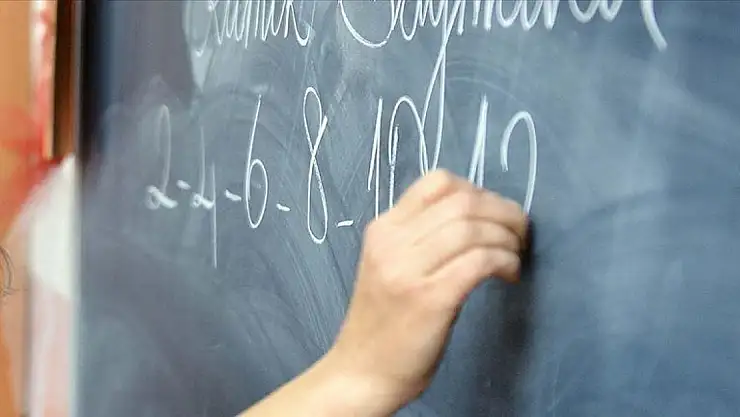 Ritmik Saymalar
2-4-6-8-10-12